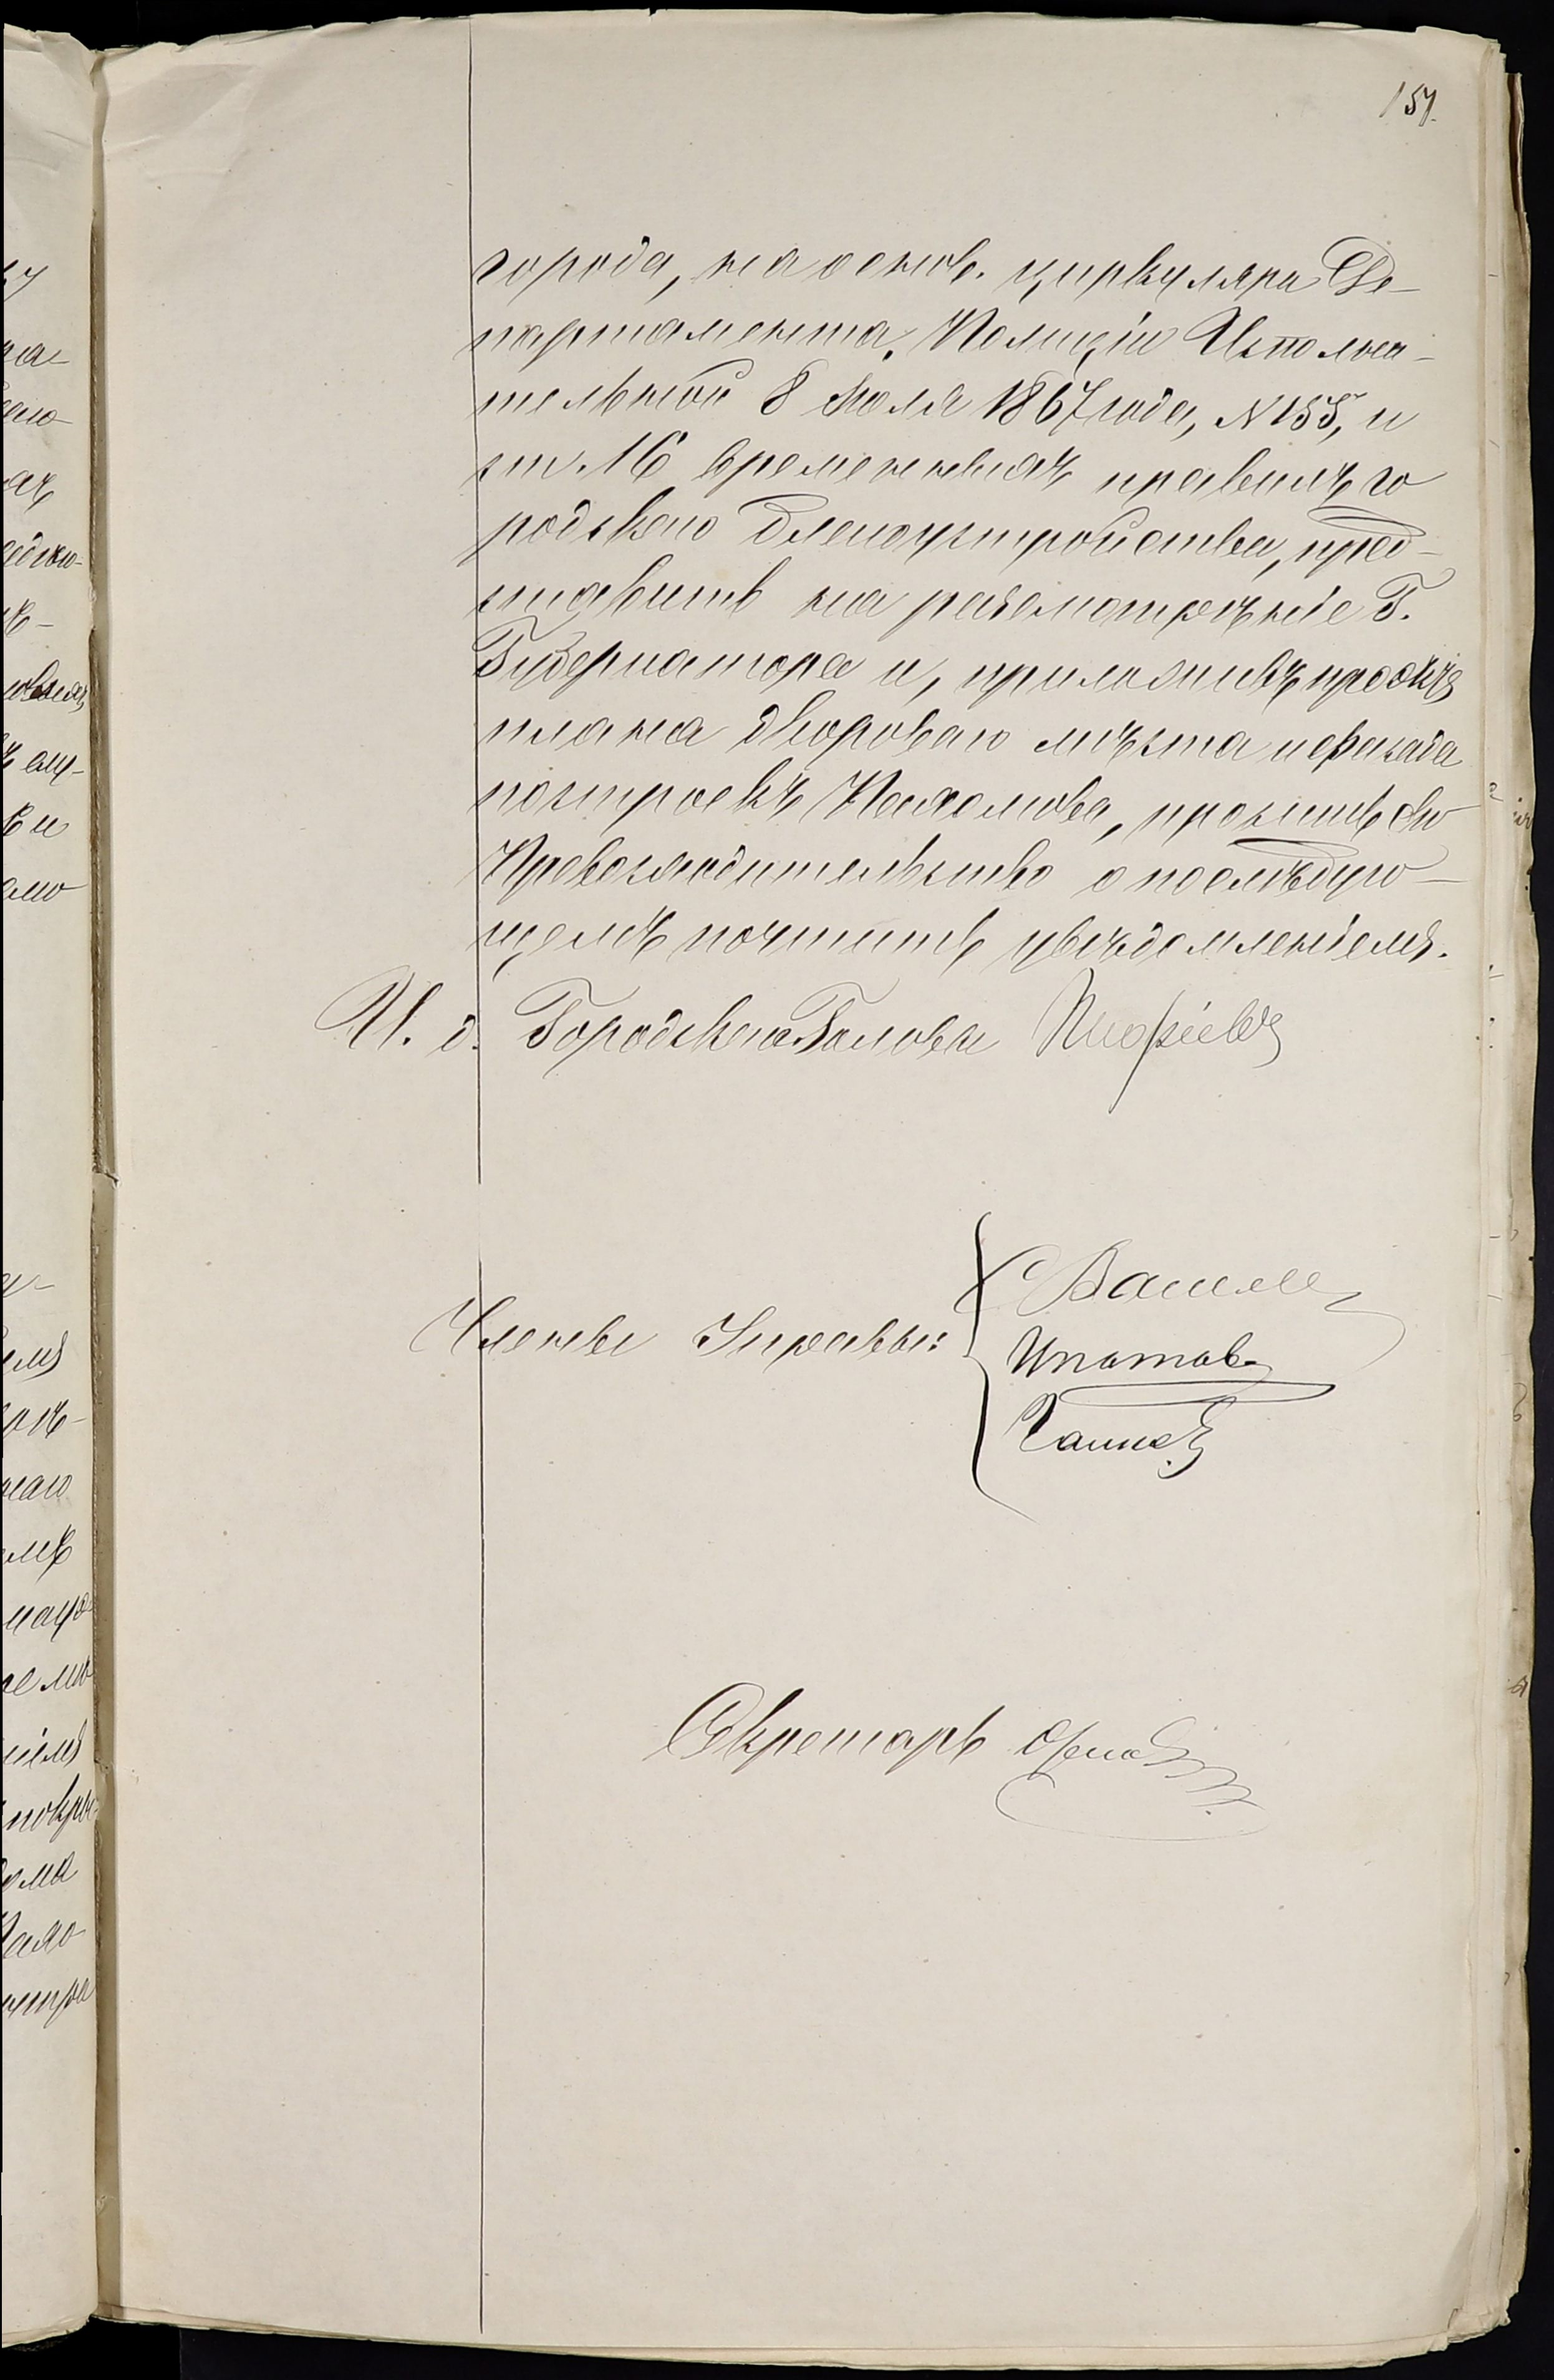 157.
города, на основ. циркуляра Де-
партамента Полиціи Исполни-
тельной 8 Іюля 1867 года, N 155, и
ст. 16 временныхъ правилъ го
родскаго благоустройства, пред-
ставить на разсмотрѣніе Г.
Губернатора и, приложивъ проэктъ
плана двороваго мѣста и фасада
построекъ Пахомова, просить Его
Превосходительство о послѣдую-
щемъ почтить увѣдомленіемъ.
И. д. Городскаго Головы
Члены Управы:
Ипатовъ
Секретарь